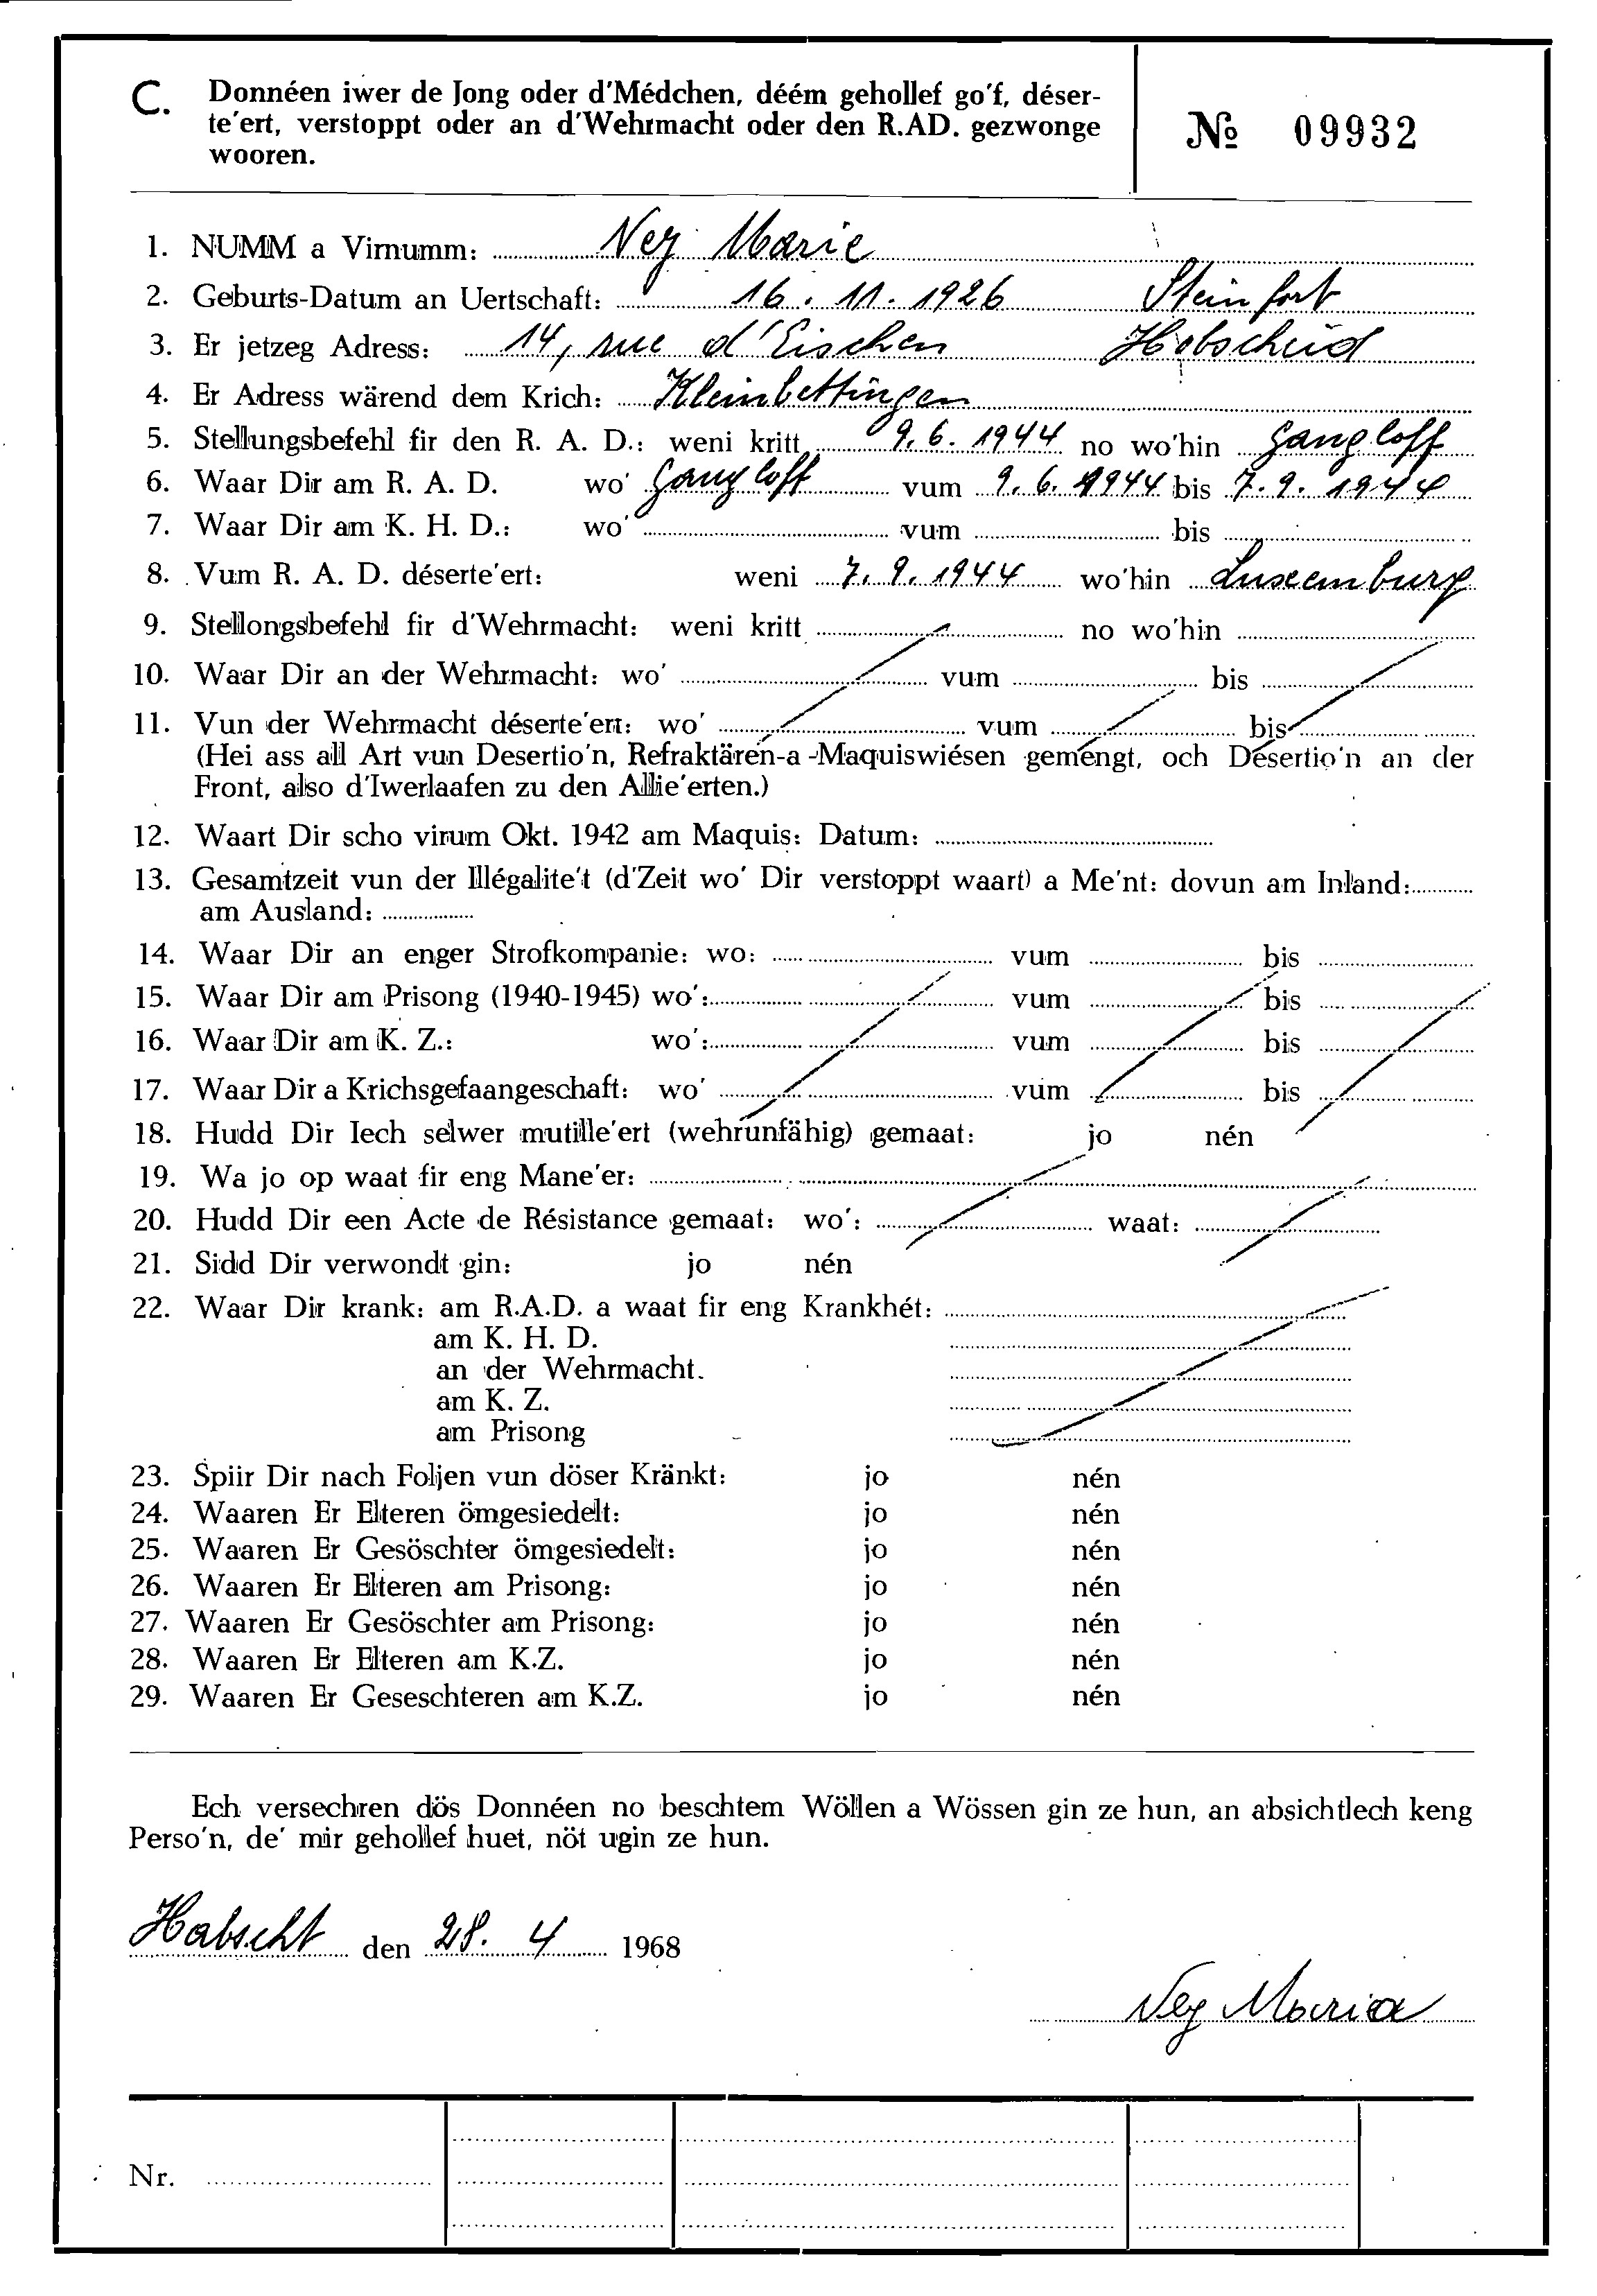 C. Donnéen iwer de Jong oder d'Médchen, déém gehollef go'f, déser-
te'ert, verstoppt oder an d'Wehrmacht oder den R.AD. gezwonge
wooren.
№ 09932
1. NUMM a Virnumm: Ney Marie
2. Geburts-Datum an Uertschaft: 16. 11. 1926 Steinfort
3. Er jetzeg Adress: 14, rue d'Eischen Hobscheid
4. Er Adress wärend dem Krich: Kleinbettingen
5. Stellungsbefehl fir den R. A. D.: weni kritt 9. 6. 1944 no wo'hin Gangloff
6. Waar Dir am R. A. D. wo' Gangloff vum 9. 6. 1944 bis 7. 9. 1944
7. Waar Dir am K. H. D.: wo' vum bis
8. Vum R. A. D. déserte'ert: weni 7. 9. 1944 wo'hin Luxemburg
9. Stellongsbefehl fir d'Wehrmacht: weni kritt no wo'hin
10. Waar Dir an der Wehrmacht: wo' vum bis
11. Vun der Wehrmacht déserte'ert: wo' vum bis
(Hei ass all Art vun Desertio'n, Refraktären-a -Maquiswiésen gemengt, och Désertio'n an der
Front, also d'Iwerlaafen zu den Allie'erten.)
12. Waart Dir scho virum Okt. 1942 am Maquis: Datum:
13. Gesamtzeit vun der Illégalite't (d'Zeit wo' Dir verstoppt waart) a Me'nt: dovun am Inland:
am Ausland:
14. Waar Dir an enger Strofkompanie: wo: vum bis
15. Waar Dir am Prisong (1940-1945) wo': vum bis
16. Waar Dir am K. Z.: wo': vum bis
17. Waar Dir a Krichsgefaangeschaft: wo' vum bis
18. Hudd Dir Iech selwer mutille'ert (wehrunfähig) gemaat: jo nén
19. Wa jo op waat fir eng Mane'er:
20. Hudd Dir een Acte de Résistance gemaat: wo': waat:
21. Sidd Dir verwondt gin: jo nén
22. Waar Dir krank: am R.A.D. a waat fir eng Krankhét:
am K. H. D.
an der Wehrmacht.
am K. Z.
am Prisong
23. Spiir Dir nach Foljen vun döser Kränkt: jo nén
24. Waaren Er Elteren ömgesiedelt: jo nén
25. Waaren Er Gesöschter ömgesiedelt: jo nén
26. Waaren Er Elteren am Prisong: jo nén
27. Waaren Er Gesöschter am Prisong: jo nén
28. Waaren Er Elteren am K.Z. jo nén
29. Waaren Er Geseschteren am K.Z. jo nén
Ech versechren dös Donnéen no beschtem Wöllen a Wössen gin ze hun, an absichtlech keng
Perso'n, de' mir gehollef huet, nöt ugin ze hun.
Habscht den 28. 4 1968
Ney Maria
Nr.